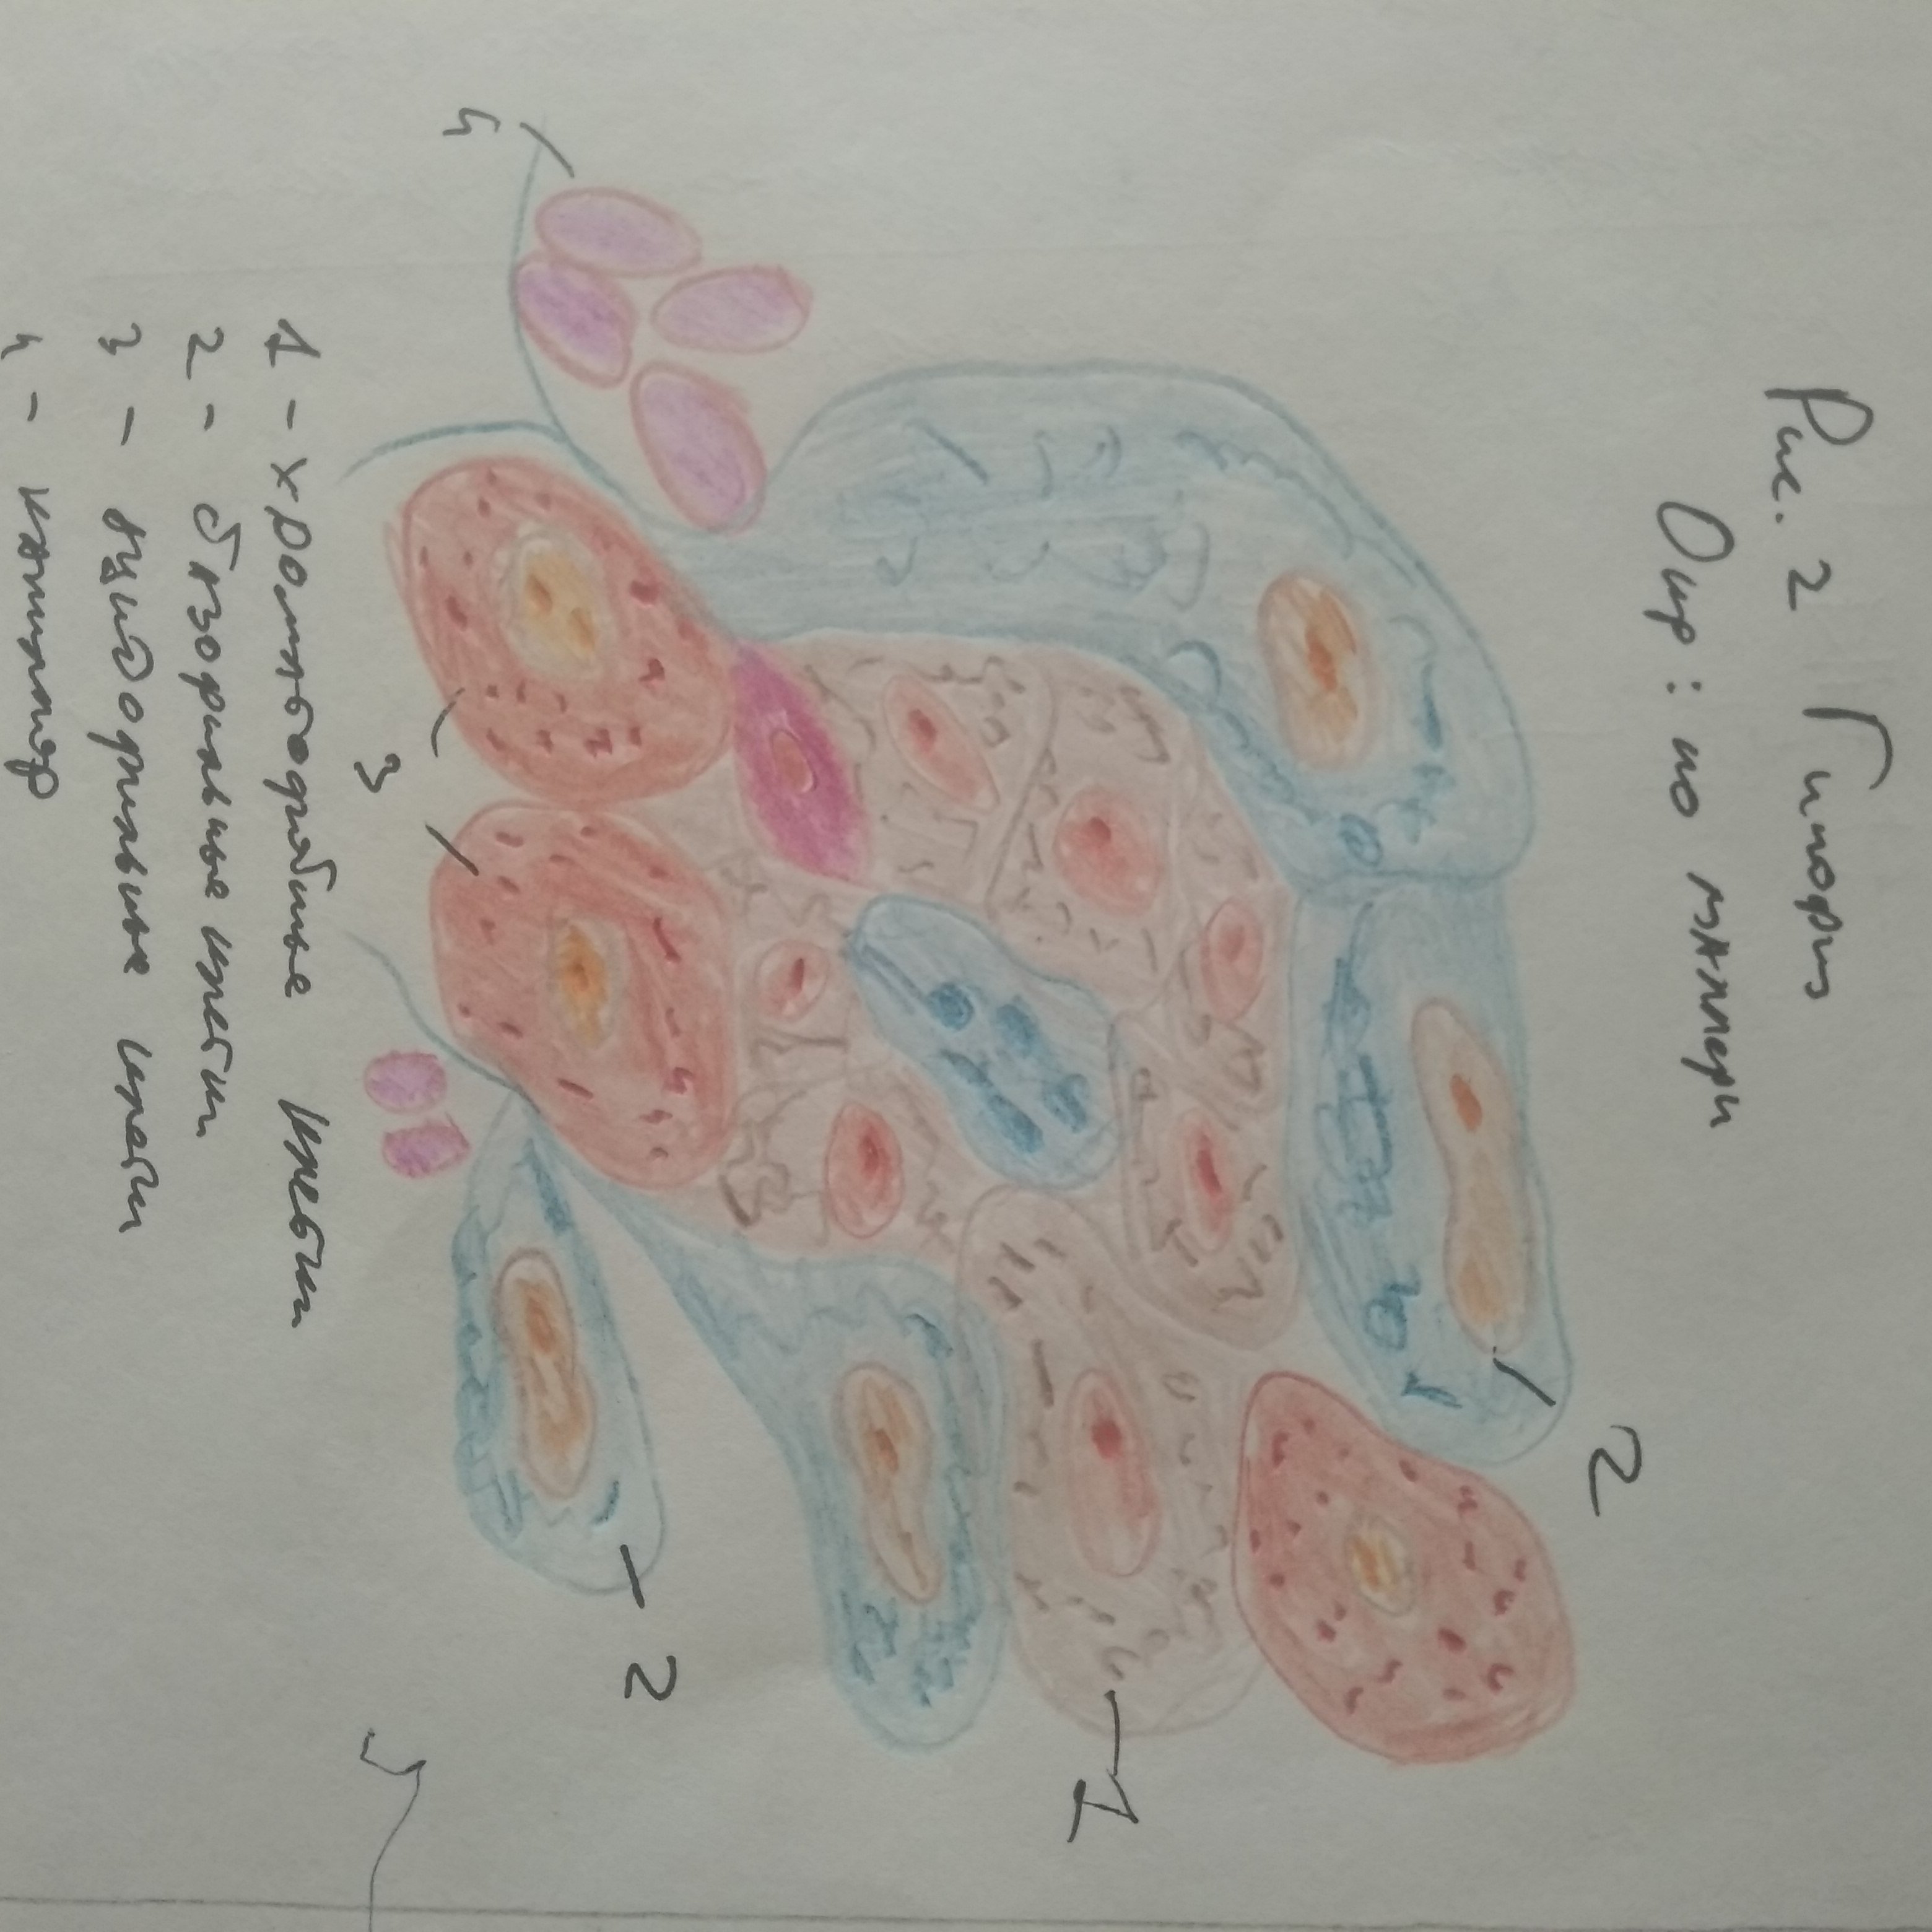 Рис. 2 Гипофиз
Окр: по маллори
4
3
2
2
1
1 - хромотофобные клетки
2 - базофильные клетки
3 - ацидофильные клетки
4 - капилляр